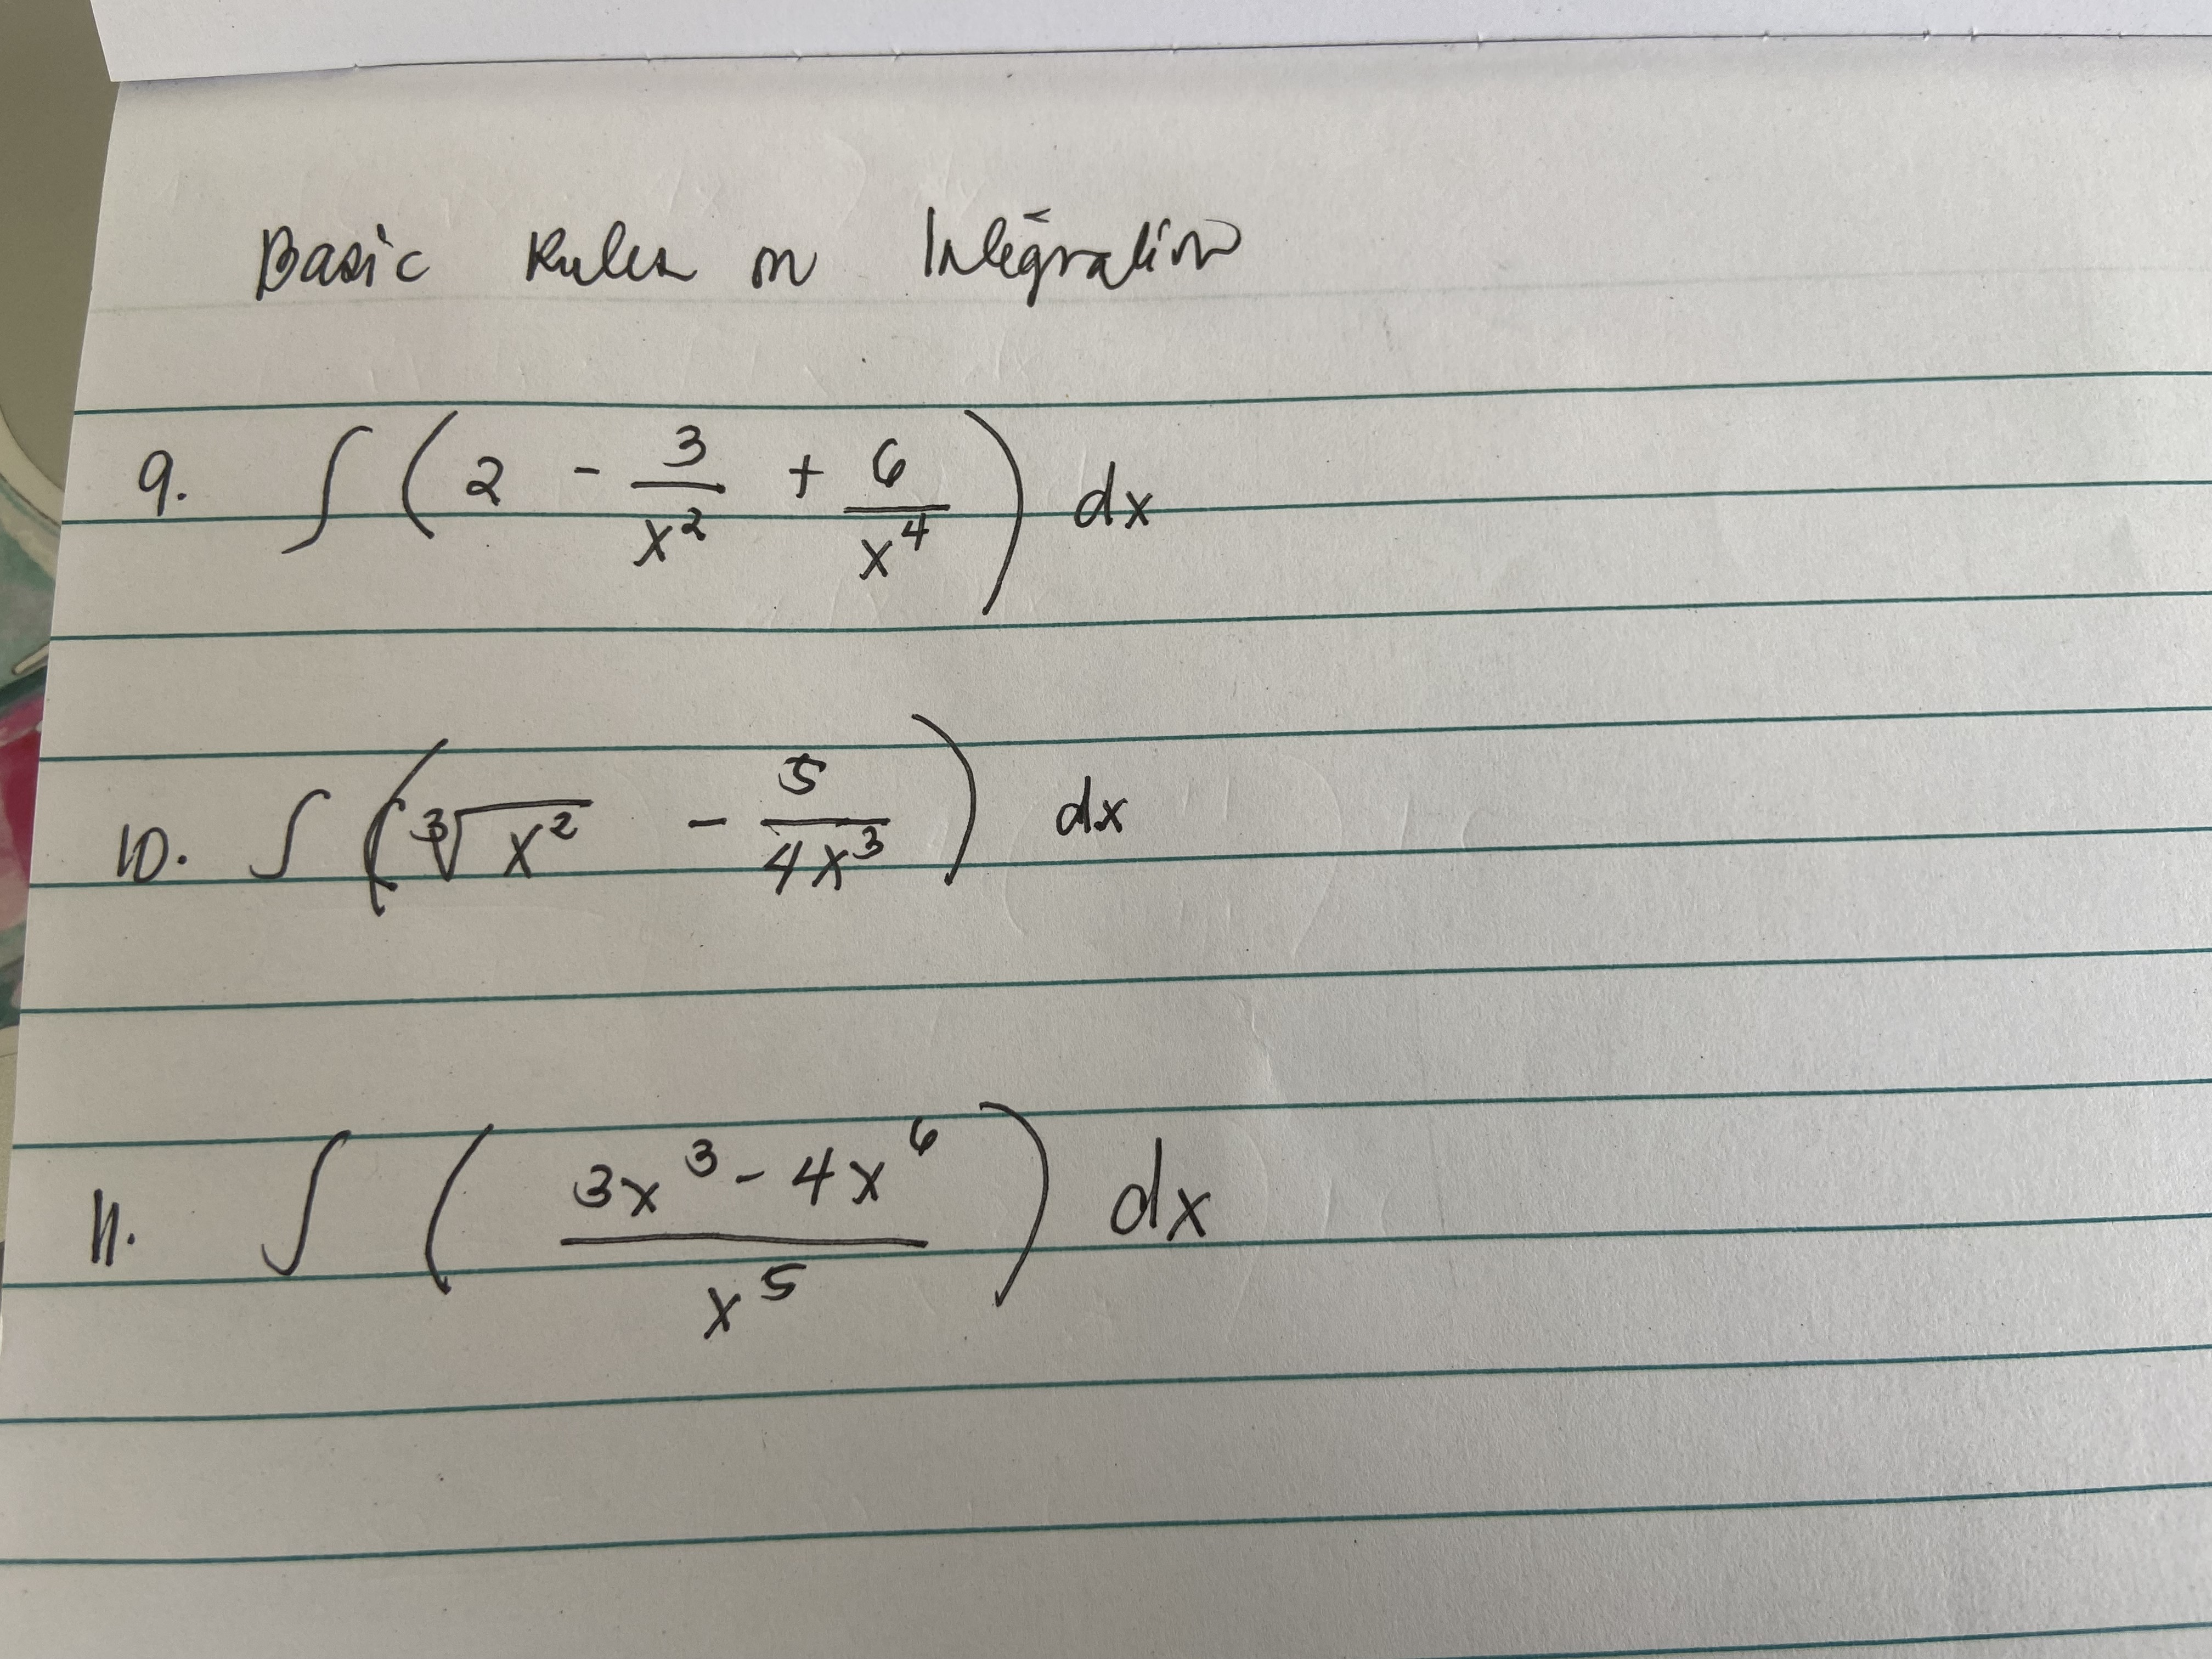 Basic Rules on Integration
9. ∫ (2 - 3/x² + 6/x⁴) dx
10. ∫ (∛x² - 5/4x³) dx
11. ∫ ((3x³ - 4x⁶)/x⁵) dx